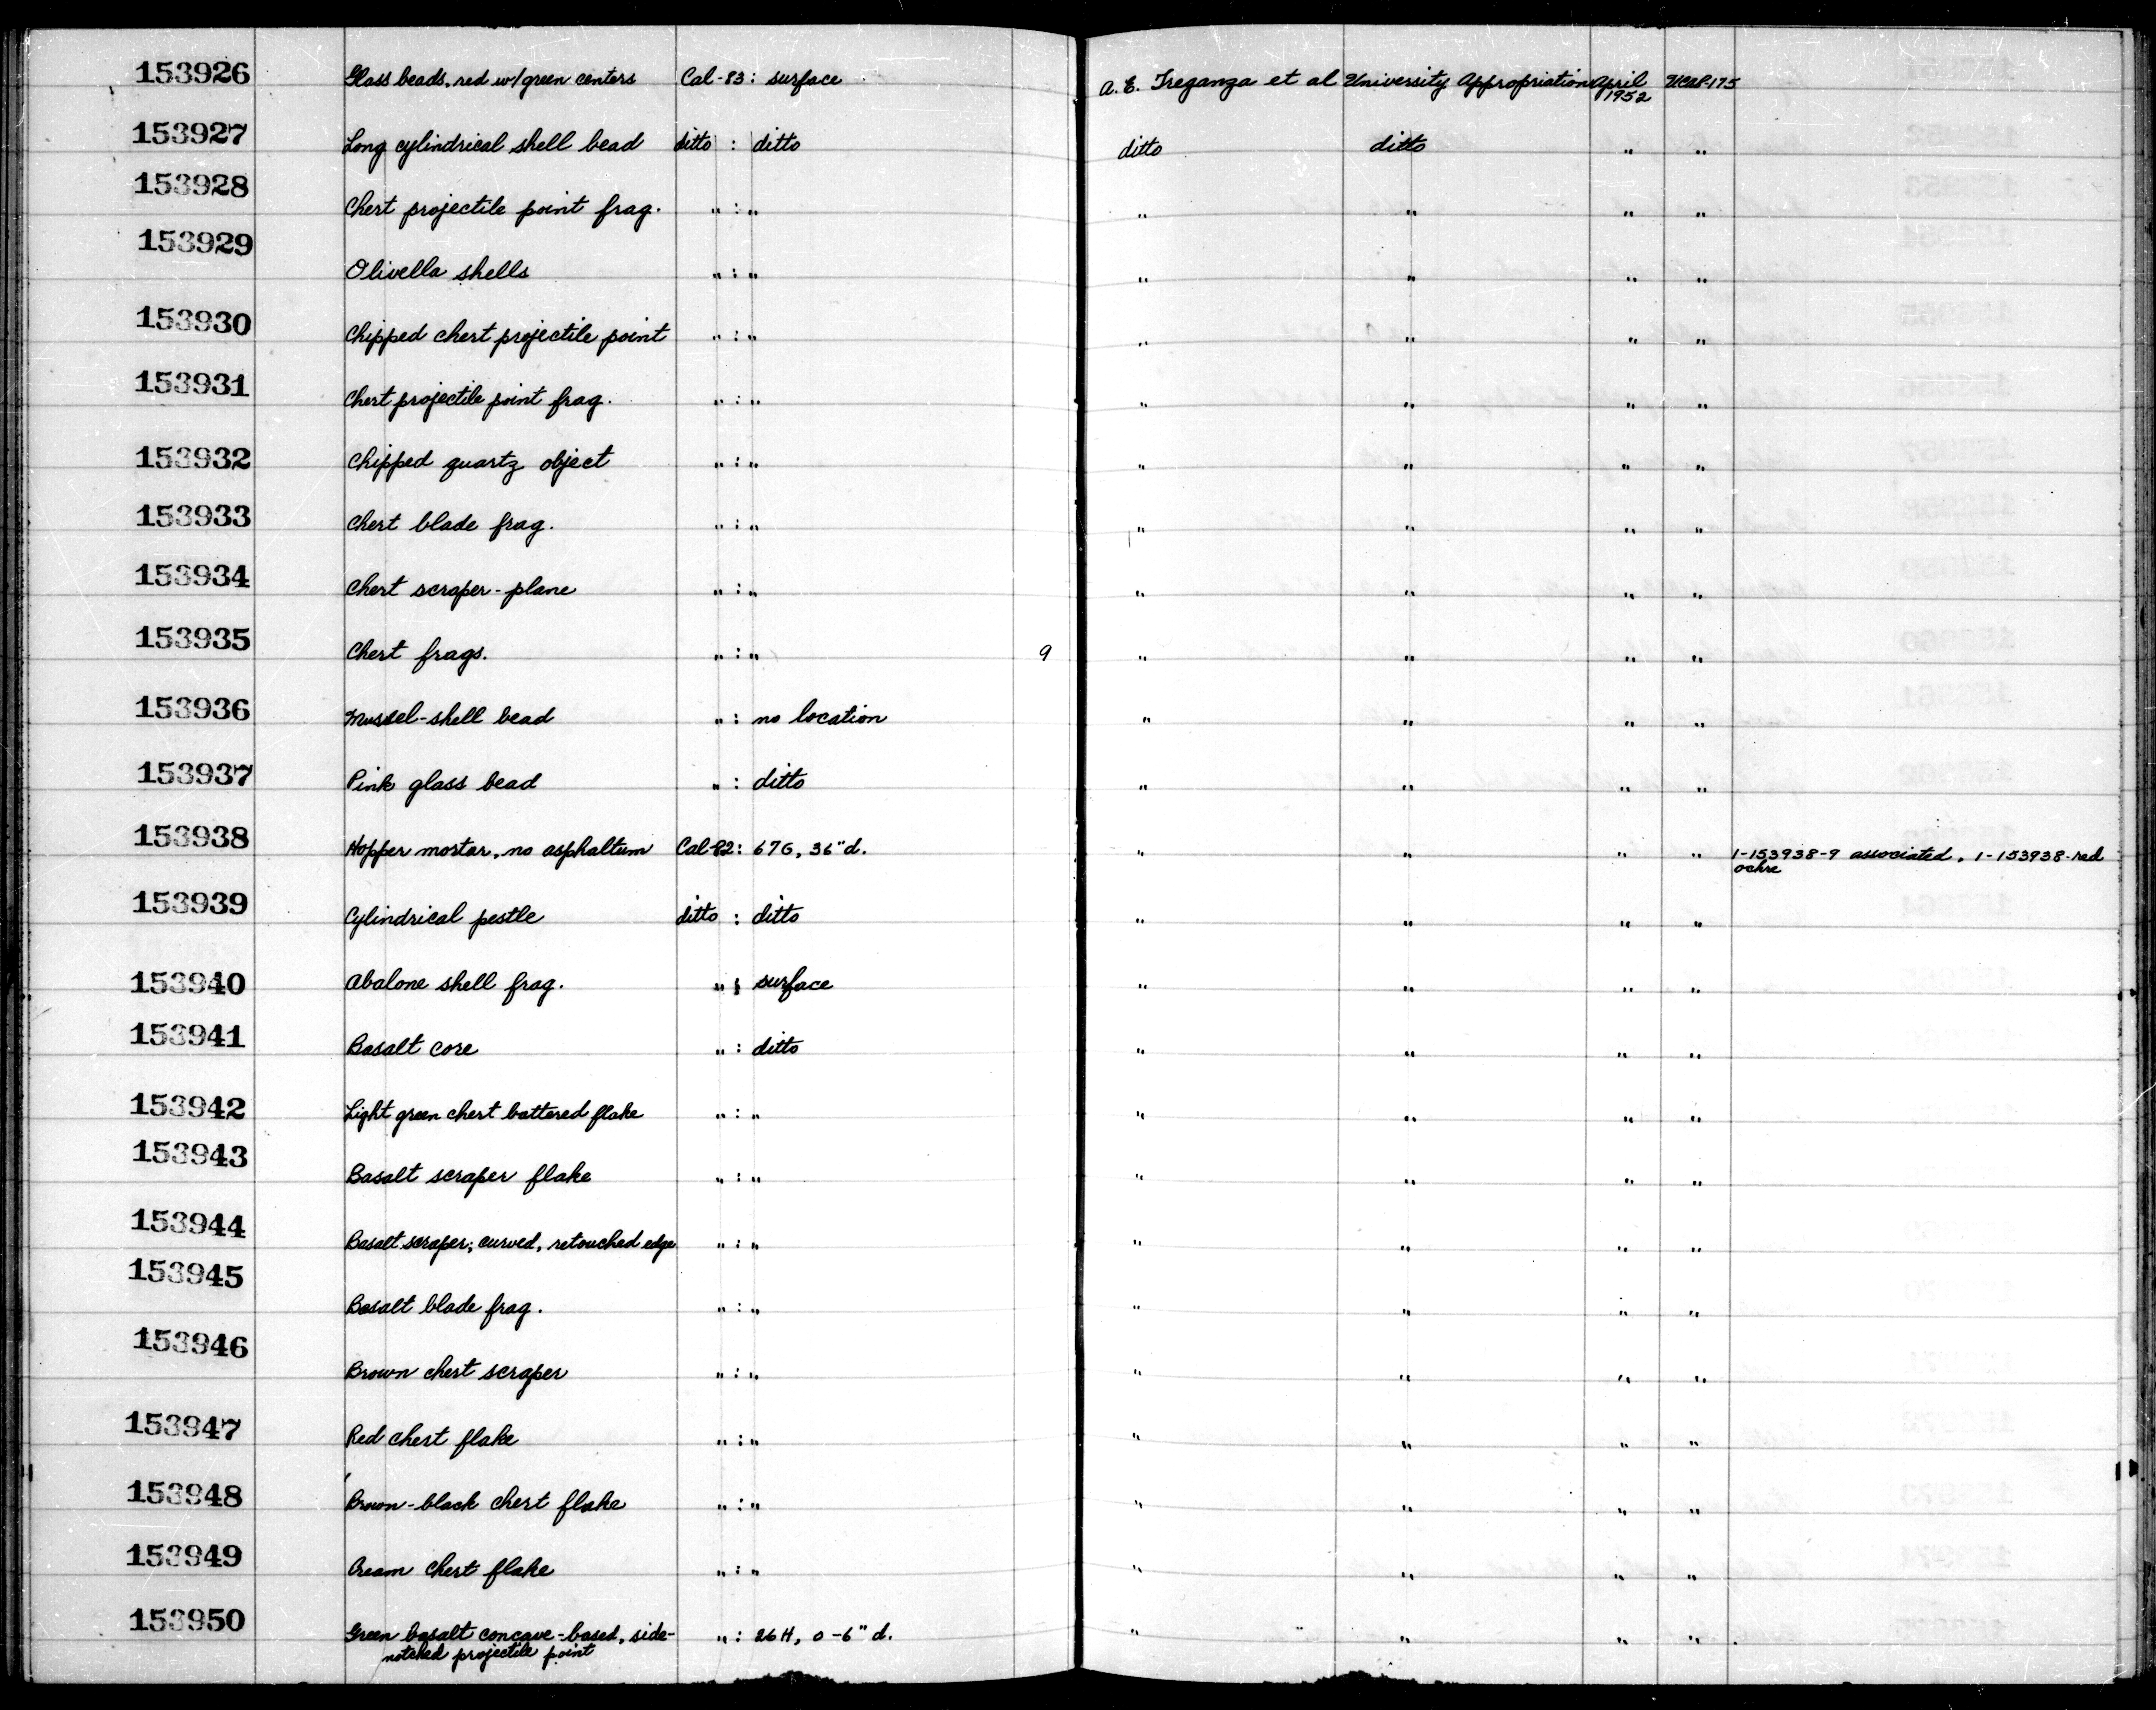 153926 Glass beads, red w/green centers Cal-83: surface A. E. Treganza et al University Appropriation April 1952 UCAS-175
153927 Long cylindrical shell bead ditto : ditto ditto ditto " "
153928 Chert projectile point frag. " : " " " " "
153929 Olivella shells " : " " " " "
153930 Chipped chert projectile point " : " " " " "
153931 Chert projectile point frag. " : " " " " "
153932 Chipped quartz object " : " " " " "
153933 Chert blade frag. " : " " " " "
153934 Chert scraper-plane " : " " " " "
153935 Chert frags. " : " 9 " " " "
153936 Mussel-shell bead " : no location " " " "
153937 Pink glass bead " : ditto " " " "
153938 Hopper mortar, no asphaltum Cal-82: 67G, 36" d. " " " " 1-153938-9 associated, 1-153938-red
ochre
153939 Cylindrical pestle ditto : ditto " " " "
153940 Abalone shell frag. " : surface " " " "
153941 Basalt core " : ditto " " " "
153942 Light green chert battered flake " : " " " " "
153943 Basalt scraper flake " : " " " " "
153944 Basalt scraper; curved, retouched edge " : " " " " "
153945 Basalt blade frag. " : " " " " "
153946 Brown chert scraper " : " " " " "
153947 Red chert flake " : " " " " "
153948 Brown-black chert flake " : " " " " "
153949 Cream chert flake " : " " " " "
153950 Green basalt concave-based, side- " : 26H, 0-6" d. " " " "
notched projectile point